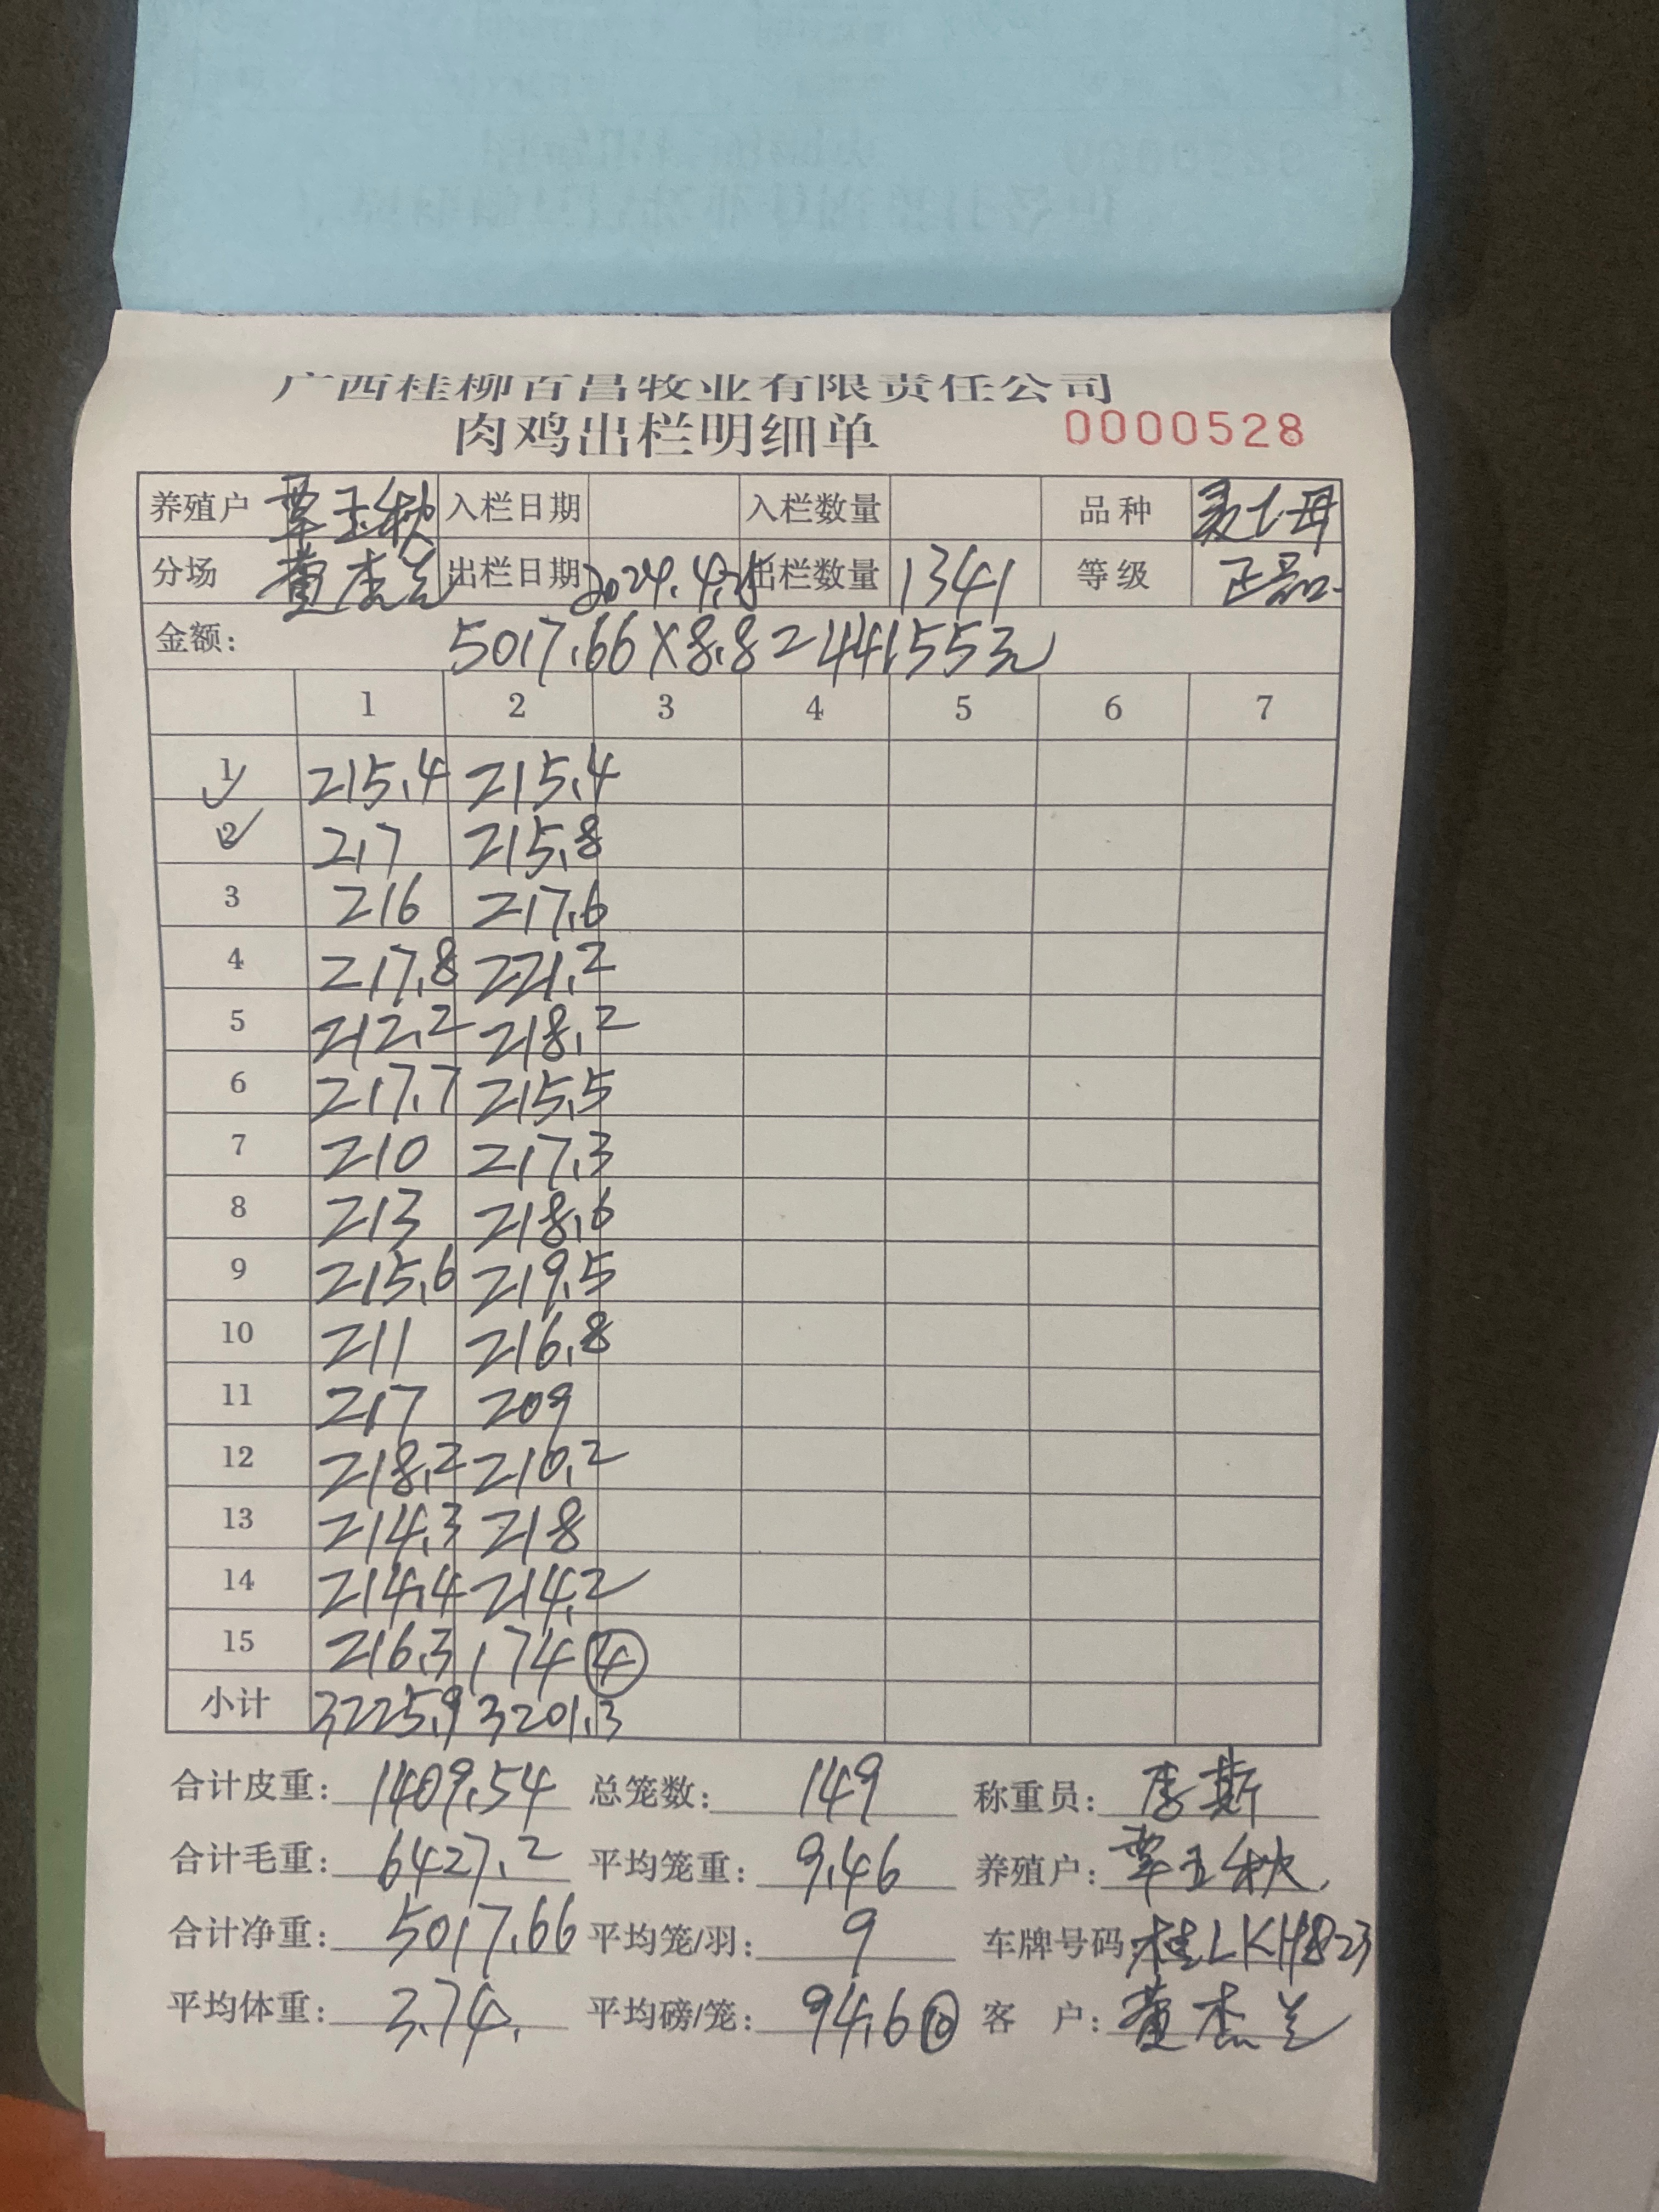 广西桂柳百昌牧业有限责任公司
肉鸡出栏明细单 0000528
养殖户 覃玉秋 入栏日期 入栏数量 品种
分场 黄杰兰 出栏日期 2024.4.25 出栏数量 1341 等级 正品
金额: 5017.66×8.8=44155元
1 2 3 4 5 6 7
1 215.4 215.4
2 217 215.8
3 216 217.6
4 217.8 221.2
5 212.2 218.2
6 217.7 215.5
7 210 217.3
8 213 218.6
9 215.6 219.5
10 211 216.8
11 217 209
12 218.2 210.2
13 214.3 218
14 214.4 214.2
15 216.3 174 ④
小计 3225.9 3201.3
合计皮重: 1409.54 总笼数: 149 称重员: 李斯
合计毛重: 6427.2 平均笼重: 9.46 养殖户: 覃玉秋
合计净重: 5017.66 平均笼/羽: 9 车牌号码: 桂LKH823
平均体重: 3.74. 平均磅/笼: 94.6 ⑩ 客户: 黄杰兰